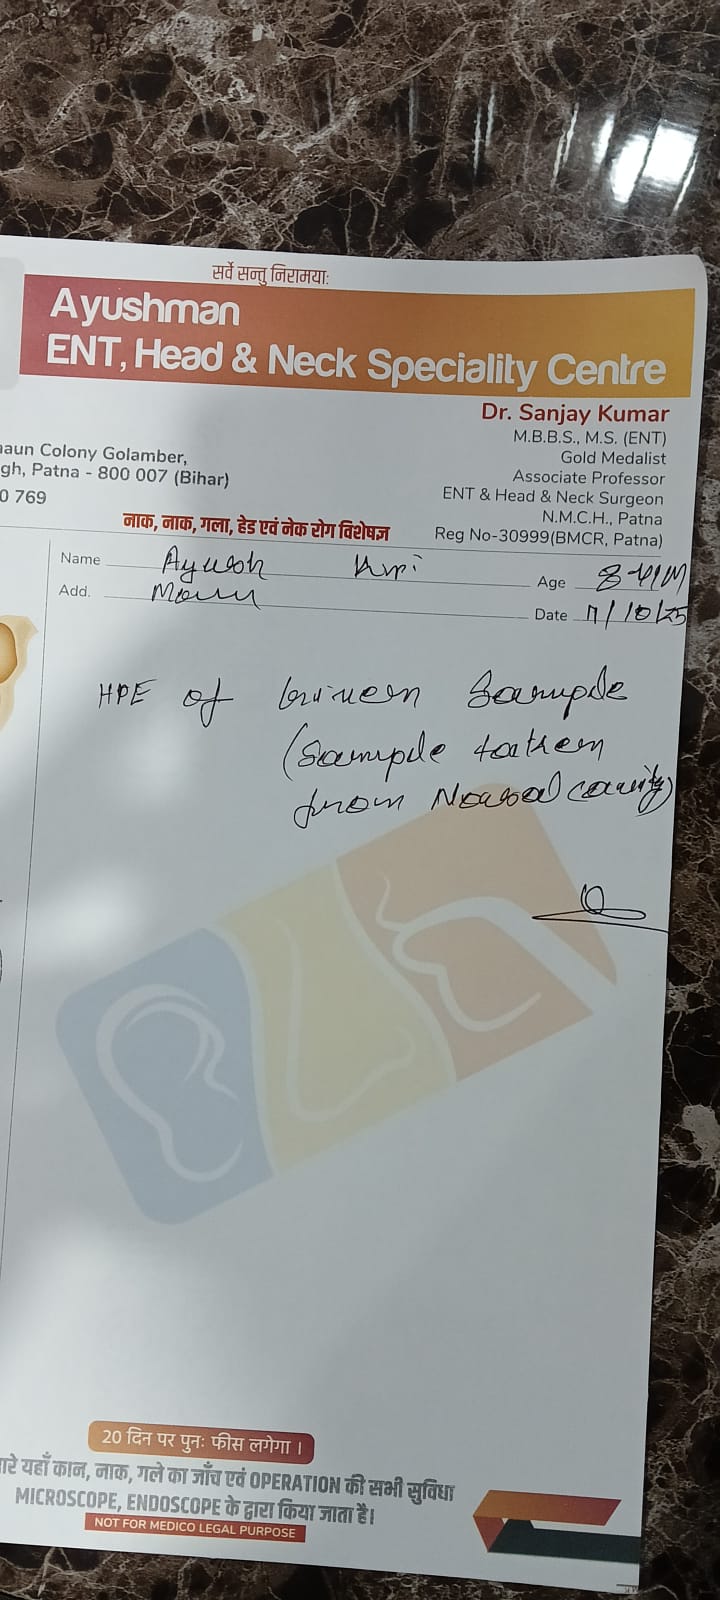 सर्वे सन्तु निरामयाः
Ayushman
ENT, Head & Neck Speciality Centre
Dr. Sanjay Kumar
M.B.B.S., M.S. (ENT)
Gold Medalist
Associate Professor
ENT & Head & Neck Surgeon
N.M.C.H., Patna
Reg No-30999(BMCR, Patna)
aun Colony Golamber,
gh, Patna - 800 007 (Bihar)
0 769
नाक, नाक, गला, हेड एवं नेक रोग विशेषज्ञ
Name Ayush Age
Add. Date /10/25
HPE of Given Sample
(Sample taken
from Nasal cavity)
20 दिन पर पुनः फीस लगेगा ।
ारे यहाँ कान, नाक, गले का जाँच एवं OPERATION की सभी सुविधा
MICROSCOPE, ENDOSCOPE के द्वारा किया जाता है।
NOT FOR MEDICO LEGAL PURPOSE